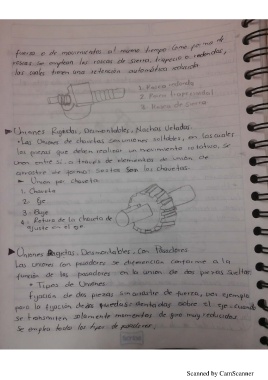 fuerza o de movimientos al mismo tiempo como por medio de
roscas se emplean las roscas de sierra, trapecio o redondas,
las cuales tienen una retención automática reducida
1. Rosca redonda
2. Rosca trapezoidal
3. Rosca de sierra
Uniones Rígidas, Desmontables,
Las Uniones de chavetas son uniones soltables, en las cuales
las piezas que deben realizar un movimiento rotativo, se
unen entre sí a través de elementos de unión de
arrastre de forma. Estos son las chavetas.
Unión por chaveta
1. Chaveta
2. Eje
3. Buje
4. Retara de la chaveta de
ajuste en el eje
Uniones Rígidas, Desmontables, Con Pasadores
Las uniones con pasadores se diferencian conforme a la
función de los pasadores en la unión de dos piezas sueltas:
• Tipos de Uniones
Fijación de dos piezas sin arrastre de fuerza, por ejemplo
para la fijación de ruedas dentadas sobre el eje cuando
se transmiten solamente momentos de giro muy reducidos.
Se emplea todos los tipos de pasadores.
Scanned by CamScanner